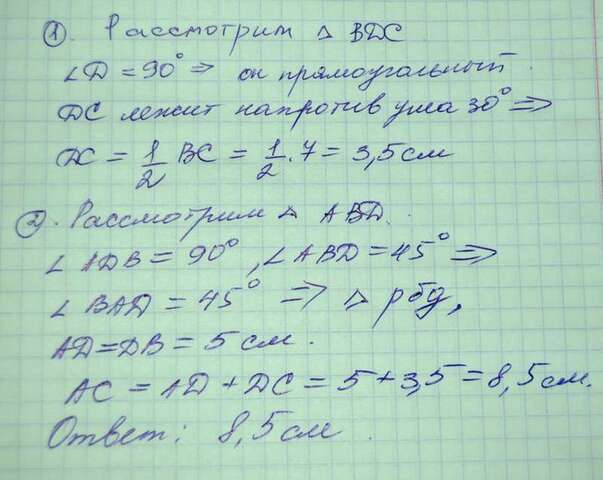 1. Рассмотрим △ BDC
∠D = 90° ⇒ он прямоугольный.
DC лежит напротив угла 30° ⇒
DC = 1/2 BC = 1/2 · 7 = 3,5 см
2. Рассмотрим △ ABD.
∠ADB = 90°, ∠ABD = 45° ⇒
∠BAD = 45° ⇒ △ рбд,
AD = DB = 5 см.
AC = AD + DC = 5 + 3,5 = 8,5 см.
Ответ: 8,5 см.